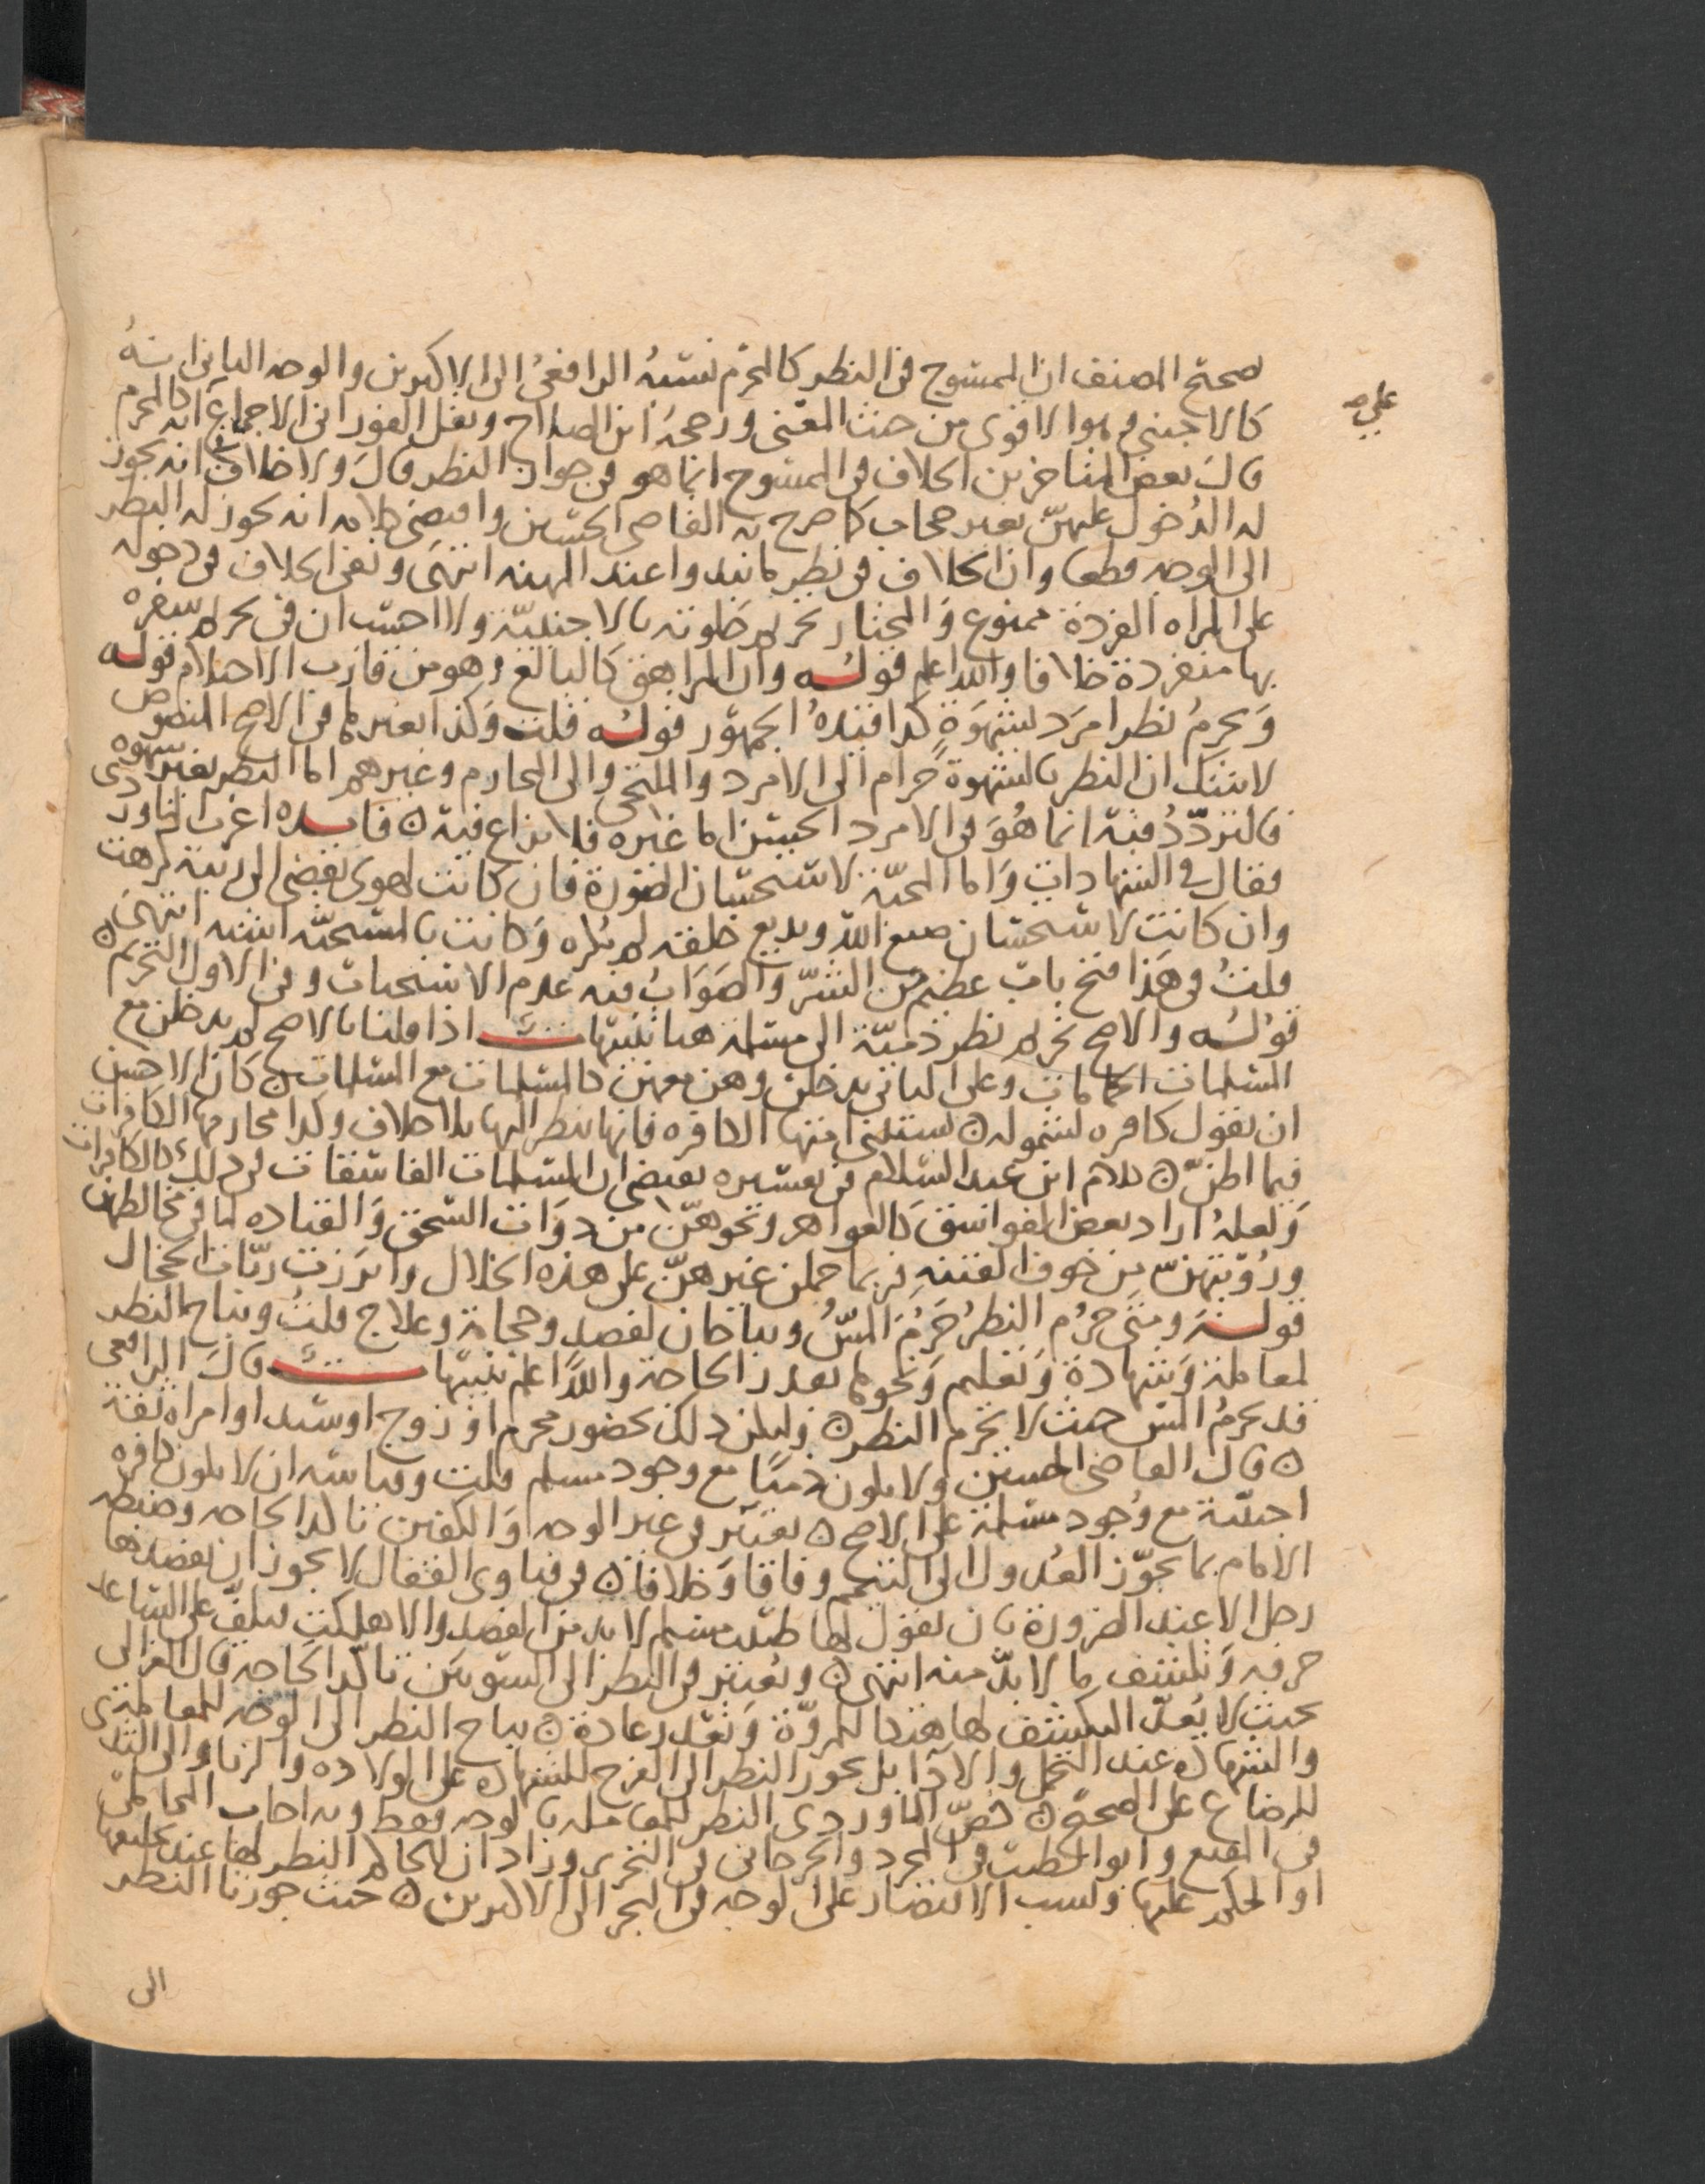 صحح المصنف ان الممسوح في النظر كالمحرم نسبه الرافعي الى الاكثرين والوجه الثاني انه
كالاجنبي وهو الاقوى من حيث المعنى ورجحه ابن الصلاح ونقل الفوراني الاجماع انه كالمحرم
على صح
قال بعض المتاخرين الخلاف في الممسوح انما هو في جواز النظر قال ولا خلاف انه يجوز
له الدخول عليهن بغير حجاب كما صرح به القاضي الحسين واقتضى كلامه انه يجوز له النظر
الى الوجه قطعا وان الخلاف في نظر ما يبدوا عند المهنه انتهى ونفي الخلاف في دخوله
على المراه الفردة ممنوع والمختار تحريم خلوته بالاجنبية ولا احسب ان في تحريم سفره
بها منفردة خلافا والله اعلم قوله وان المراهق كالبالغ وهو من قارب الاحتلام قوله
ويحرم نظر امرد لشهوة كذا قيده الجمهور قوله قلت وكذا بغيرها في الاصح المنصوص
لا شك ان النظر بالشهوة حرام الى الامرد والملتحي والى المحارم وغيرهم اما النظر بغير شهوه
فالتردد فيه انما هو في الامرد الحسن اما غيره فلا نزاع فيه فايده اغرب الماوردى
فقال في الشهادات واما المحبة لاستحسان الصورة فان كانت لهوى يفضي الى ريبة كرهت
وان كانت لاستحسان صنع الله وبديع خلقه لم تكره وكانت بالمستحبه اشبه انتهى
قلت وفي هذا فتح باب عظيم من الشر والصواب فيه عدم الاستحباب وفي الاول التحريم
قوله والاصح تحريم نظر ذمية الى مسلمة هنا تنبيهات اذا قلنا بالاصح لم يدخلن مع
المسلمات الحمامات وعلى الثاني يدخلن وهن معهن كالمسلمات مع المسلمات كان الاحسن
ان يقول كافره لشموله يستثنى منها الكافره فانها تنظر اليها بلا خلاف وكذا محارمها الكافرات
فيما اظن كلام ابن عبد السلام في تفسيره يقتضي ان المسلمات الفاسقات في ذلك كالكافرات
ولعله اراد بعض الفواسق كالعواهر ونحوهن من ذوات السحق والقياده لما في مخالطتهن
ورؤيتهن من خوف الفتنه فربما حملن غيرهن على هذه الخلال وابرزت ربات الحجال
قوله ومتى حرم النظر حرم المس ويباحان لفصد وحجامة وعلاج قلت ويباح النظر
لمعاملة وشهادة وتعليم ونحوها بقدر الحاجة والله اعلم تنبيهات قال الرافعى
قد يحرم المس حيث لا يحرم النظر وليكن ذلك بحضور محرم او زوج او سيد او امراه ثقة
قال القاضي الحسين ولا يكون ذميا مع وجود مسلم قلت وقياسه ان لا يكون كافره
اجنبية مع وجود مسلمة على الاصح يعتبر في غير الوجه والكفين تاكد الحاجه وضبطه
الامام بما يجوز العدول الى التيمم وفاقا وخلافا في فتاوى القفال لا يجوز ان يفصدها
رجل الا عند الضرورة بان يقول لها طبيب مسلم لا بد من الفصد والا هلكت فيلف على الساعد
خرقه وتكشف ما لا بد منه انتهى ويعتبر في النظر الى السوءتين تاكد الحاجه قال الغزالى
بحيث لا يعد التكشف لها هتكا للمروة وتعذر عادة يباح النظر الى الوجه للمعامله
والشهاده عند التحمل والادآ بل يجوز النظر الى الفرج للشهاده على الولاده والزنا والى الثدي
للرضاع على الصحيح خص الماوردي النظر للمعامله بالوجه فقط وبه اجاب المحاملى
في المقنع وابو الطيب في المجرد والجرجاني في التحرير وزاد ان للحاكم النظر لها عند تحليفها
او الحكم عليها ونسب الاقتصار على الوجه في البحر الى الاكثرين حيث جوزنا النظر
الى